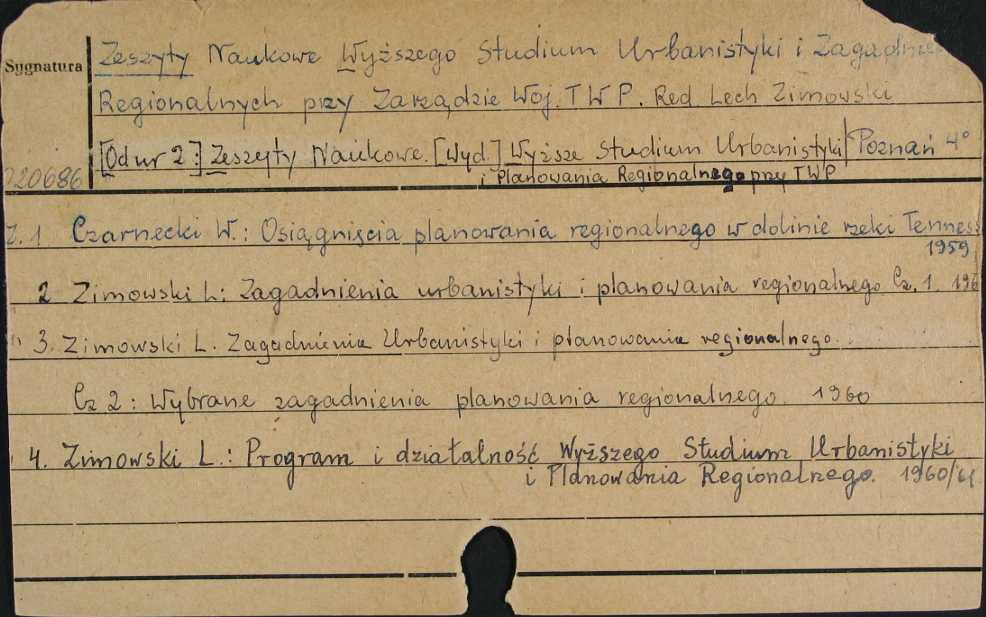 Zeszyty Naukowe Wyższego Studium Urbanistyki i Zagadnie
Sygnatura
Regionalnych przy Zarządzie Woj. TWP. Red Lech Zimowski
[Od nr 2:] Zeszyty Naukowe. [Wyd.] Wyższe Studium Urbanistyki Poznań 4°
220686
i Planowania Regionalnego przy TWP
Z. 1 Czarnecki W.: Osiągnięcia planowania regionalnego w dolinie rzeki Tennes
1959
2 Zimowski L: Zagadnienia urbanistyki i planowania regionalnego Cz. 1. 196
" 3. Zimowski L. Zagadnienia Urbanistyki i planowania regionalnego.
Cz 2: Wybrane zagadnienia planowania regionalnego. 1960
4. Zimowski L.: Program i działalność Wyższego Studium Urbanistyki
i Planowania Regionalnego. 1960/61.